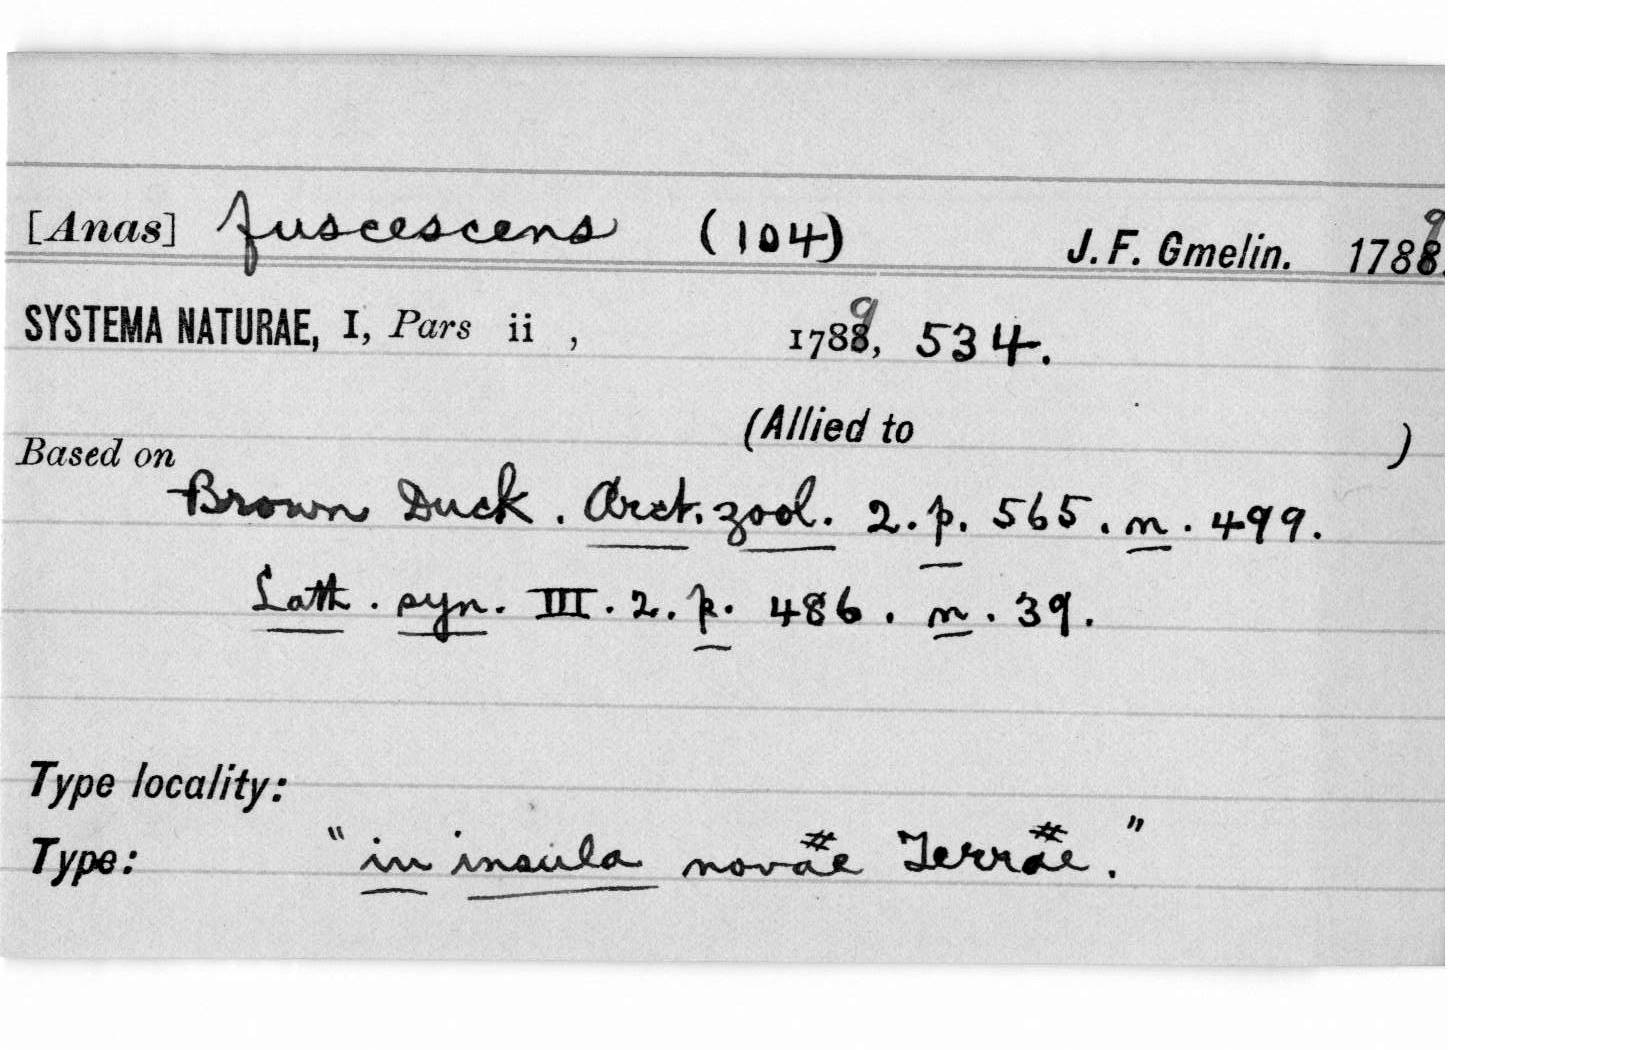 [Anas] fuscescens (104) J. F. Gmelin. 1789.
SYSTEMA NATURAE, I, Pars ii , 1789, 534.
(Allied to )
Based on
Brown Duck. Arct. zool. 2. p. 565. n. 499.
Lath. syn. III. 2. p. 486. n. 39.
Type locality:
Type: "in insula novae Terrae."